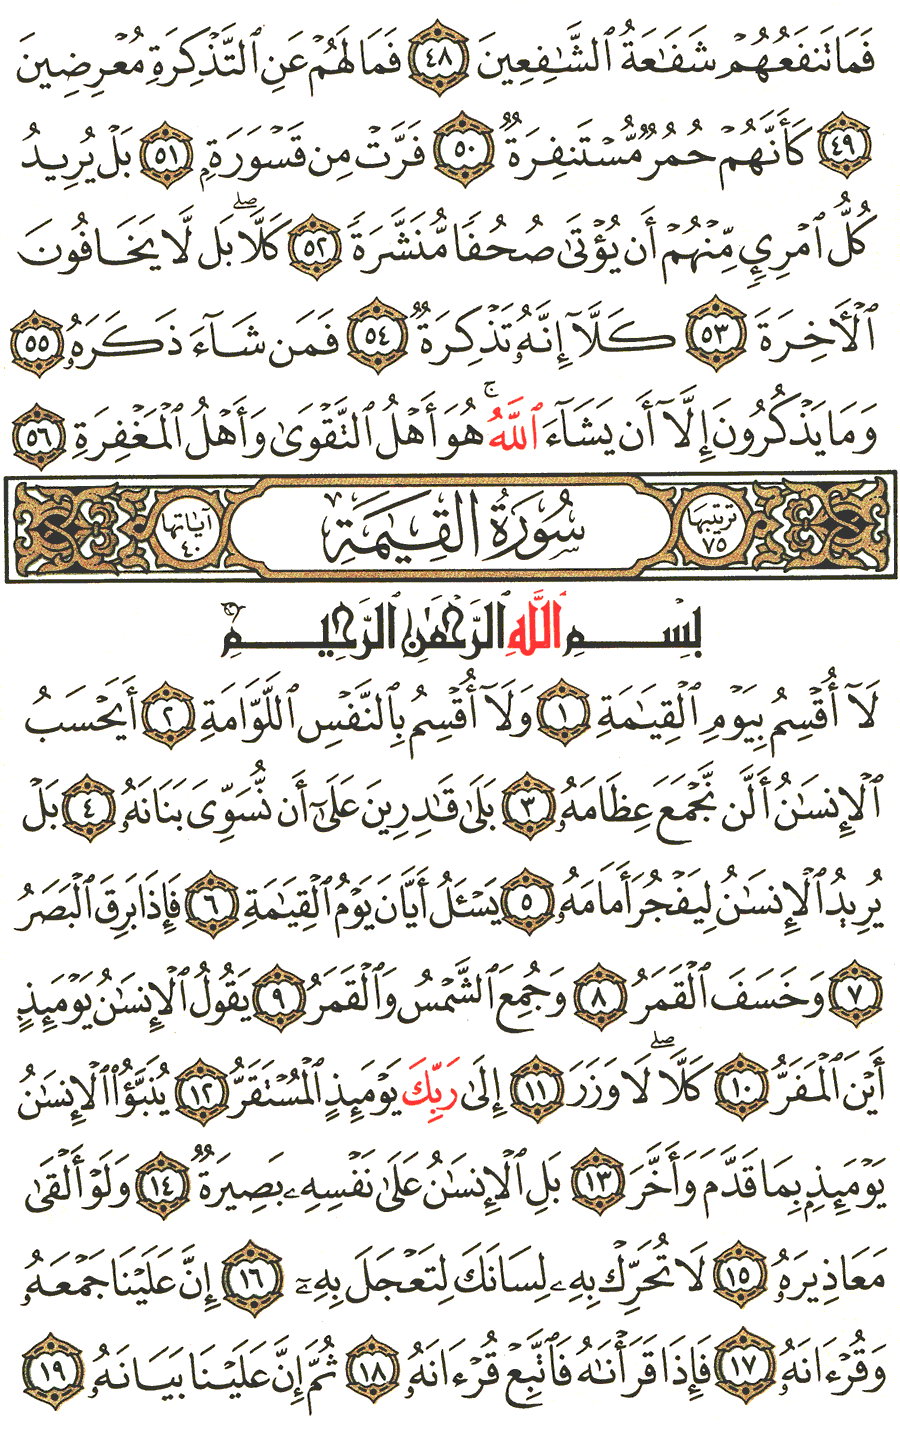 فَمَا تَنفَعُهُمْ شَفَـٰعَةُ ٱلشَّـٰفِعِينَ ٤٨ فَمَا لَهُمْ عَنِ ٱلتَّذْكِرَةِ مُعْرِضِينَ
٤٩ كَأَنَّهُمْ حُمُرٌ مُّسْتَنفِرَةٌ ٥٠ فَرَّتْ مِن قَسْوَرَةٍۭ ٥١ بَلْ يُرِيدُ
كُلُّ ٱمْرِئٍ مِّنْهُمْ أَن يُؤْتَىٰ صُحُفًا مُّنَشَّرَةً ٥٢ كَلَّا ۖ بَل لَّا يَخَافُونَ
ٱلْـَٔاخِرَةَ ٥٣ كَلَّآ إِنَّهُۥ تَذْكِرَةٌ ٥٤ فَمَن شَآءَ ذَكَرَهُۥ ٥٥
وَمَا يَذْكُرُونَ إِلَّآ أَن يَشَآءَ ٱللَّهُ ۚ هُوَ أَهْلُ ٱلتَّقْوَىٰ وَأَهْلُ ٱلْمَغْفِرَةِ ٥٦
ترتيبها ٧٥ سُورَةُ القِيَٰمَةِ آياتها ٤٠
بِسْمِ ٱللَّهِ ٱلرَّحْمَـٰنِ ٱلرَّحِيمِ
لَآ أُقْسِمُ بِيَوْمِ ٱلْقِيَـٰمَةِ ١ وَلَآ أُقْسِمُ بِٱلنَّفْسِ ٱللَّوَّامَةِ ٢ أَيَحْسَبُ
ٱلْإِنسَـٰنُ أَلَّن نَّجْمَعَ عِظَامَهُۥ ٣ بَلَىٰ قَـٰدِرِينَ عَلَىٰٓ أَن نُّسَوِّىَ بَنَانَهُۥ ٤ بَلْ
يُرِيدُ ٱلْإِنسَـٰنُ لِيَفْجُرَ أَمَامَهُۥ ٥ يَسْـَٔلُ أَيَّانَ يَوْمُ ٱلْقِيَـٰمَةِ ٦ فَإِذَا بَرِقَ ٱلْبَصَرُ
٧ وَخَسَفَ ٱلْقَمَرُ ٨ وَجُمِعَ ٱلشَّمْسُ وَٱلْقَمَرُ ٩ يَقُولُ ٱلْإِنسَـٰنُ يَوْمَئِذٍ
أَيْنَ ٱلْمَفَرُّ ١٠ كَلَّا ۖ لَا وَزَرَ ١١ إِلَىٰ رَبِّكَ يَوْمَئِذٍ ٱلْمُسْتَقَرُّ ١٢ يُنَبَّؤُا۟ ٱلْإِنسَـٰنُ
يَوْمَئِذٍۭ بِمَا قَدَّمَ وَأَخَّرَ ١٣ بَلِ ٱلْإِنسَـٰنُ عَلَىٰ نَفْسِهِۦ بَصِيرَةٌ ١٤ وَلَوْ أَلْقَىٰ
مَعَاذِيرَهُۥ ١٥ لَا تُحَرِّكْ بِهِۦ لِسَانَكَ لِتَعْجَلَ بِهِۦٓ ١٦ إِنَّ عَلَيْنَا جَمْعَهُۥ
وَقُرْءَانَهُۥ ١٧ فَإِذَا قَرَأْنَـٰهُ فَٱتَّبِعْ قُرْءَانَهُۥ ١٨ ثُمَّ إِنَّ عَلَيْنَا بَيَانَهُۥ ١٩